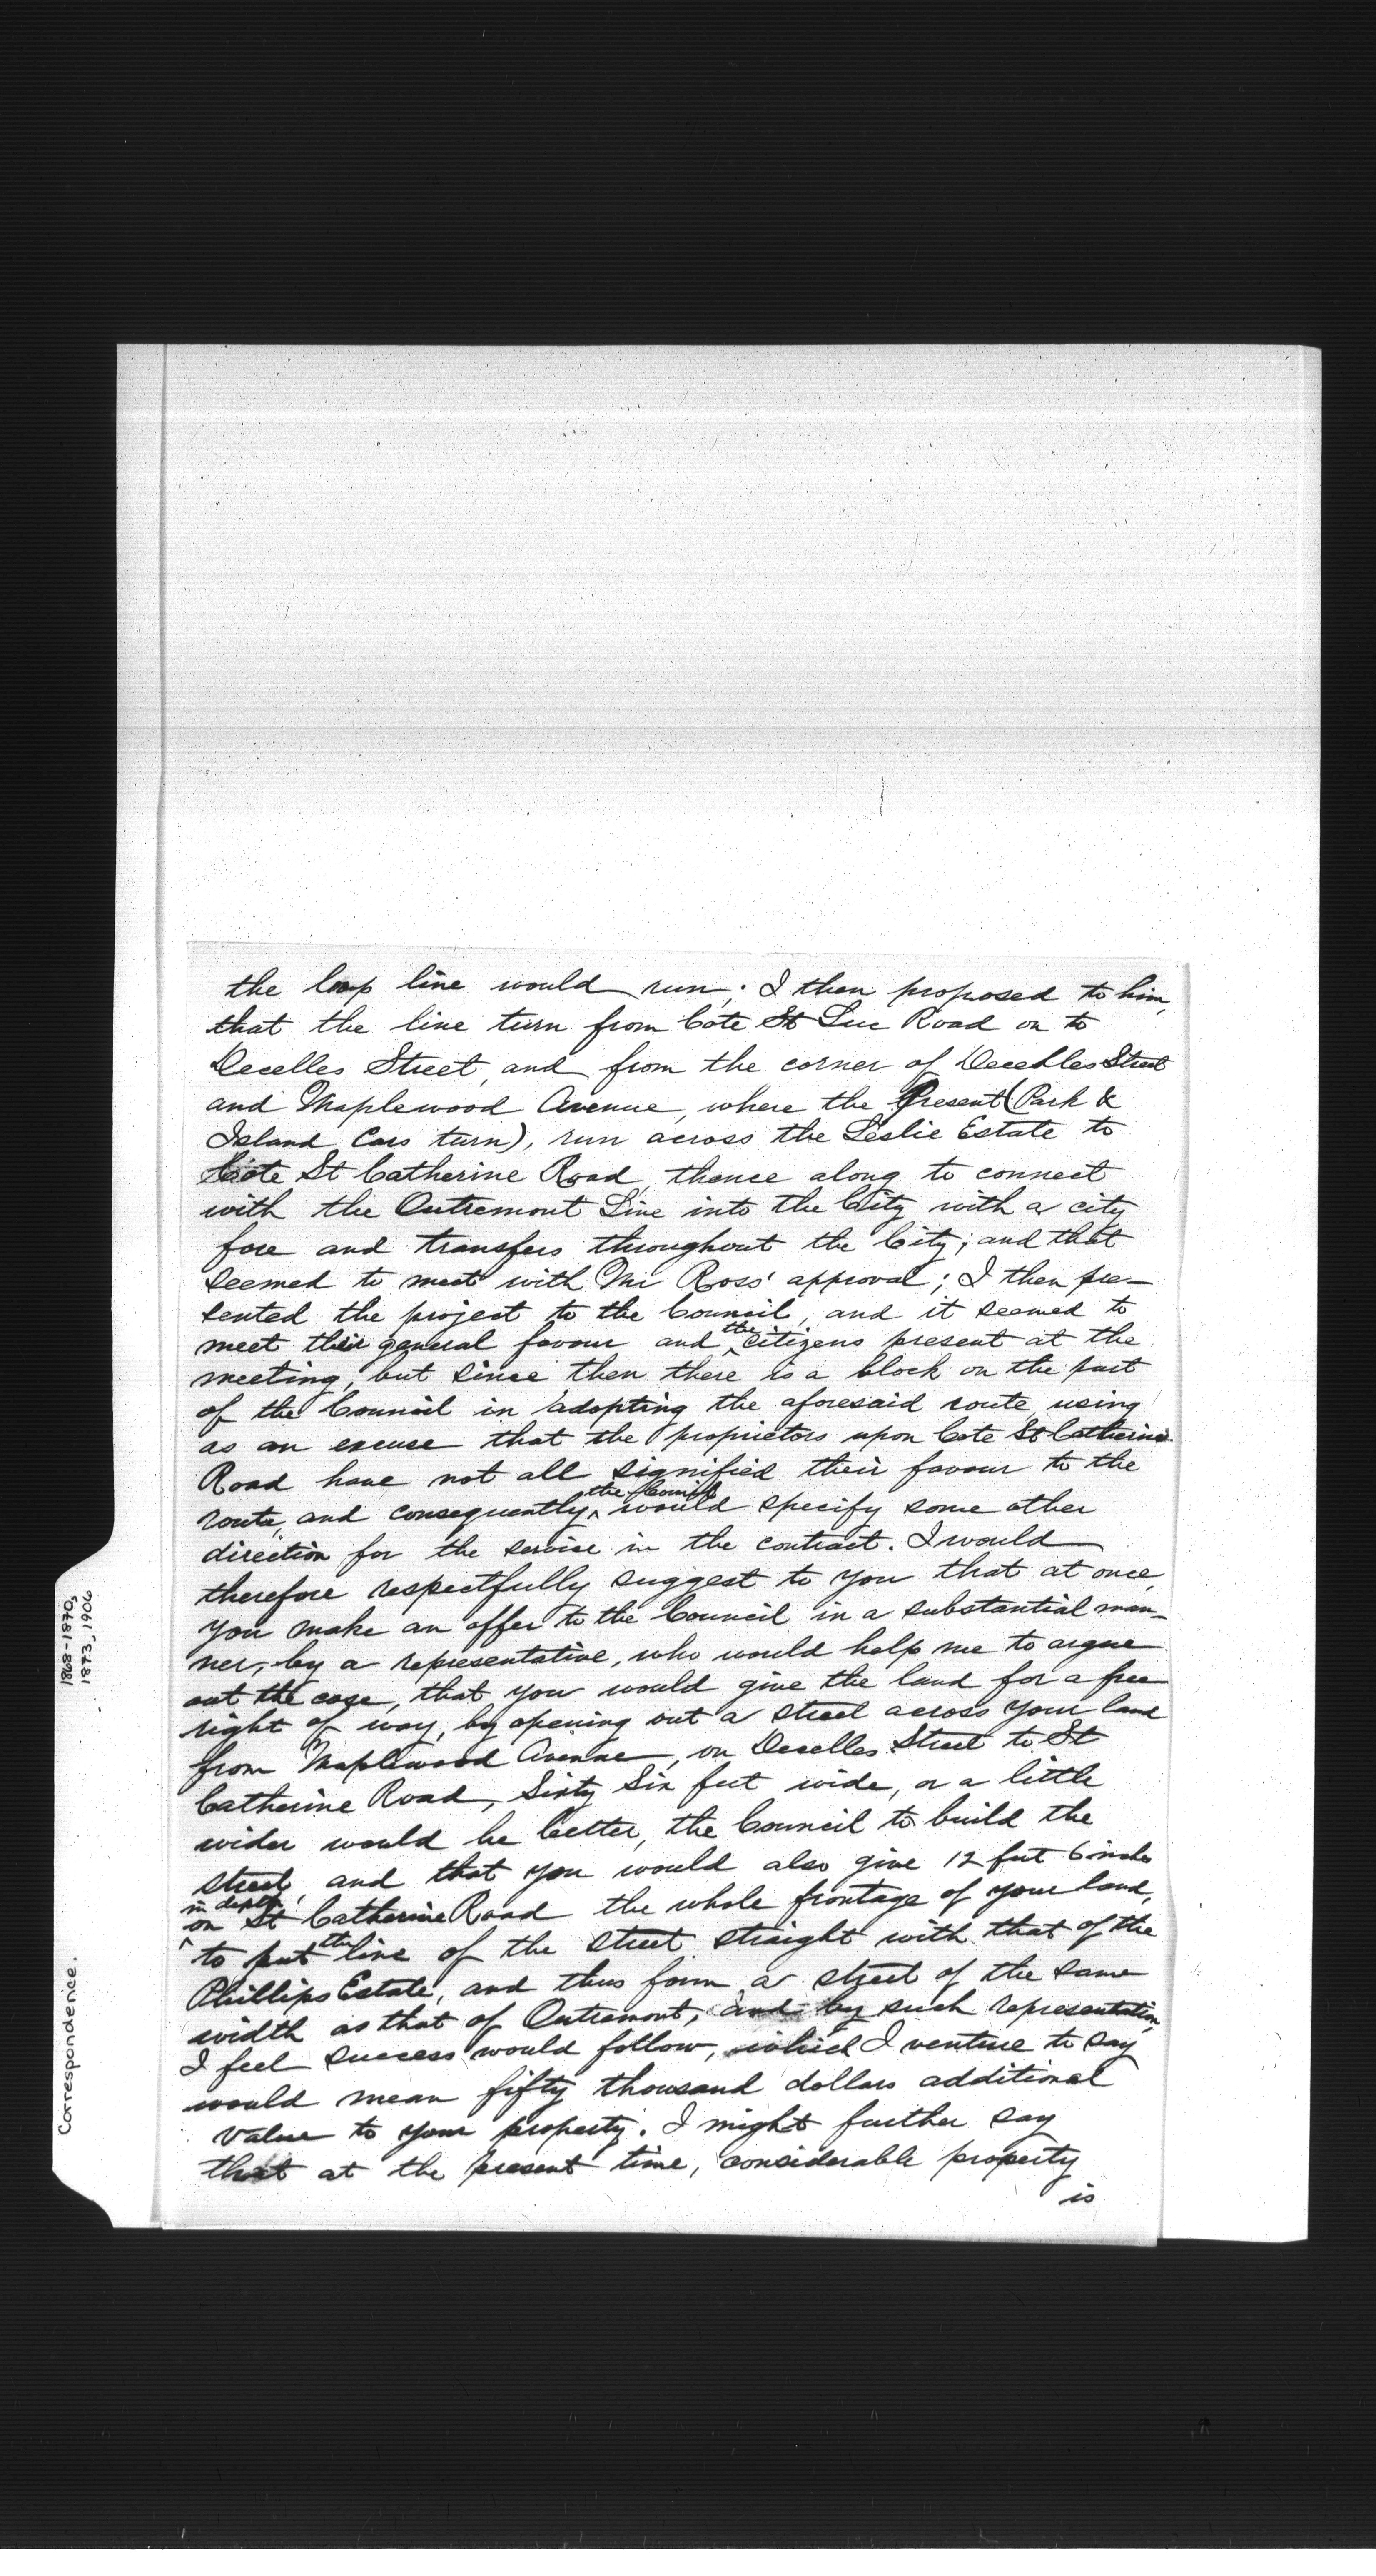 the loop line would run; I then proposed to him,
that the line turn from Cote St Luc Road on to
Decelles Street, and from the corner of Decelles Street
and Maplewood Avenue, where the present (Park &
Island Cars turn), run across the Leslie Estate to
Cote St Catherine Road, thence along to connect
with the Outremont Line into the City with a city
fare and transfers throughout the City; and that
seemed to meet with Mr Ross' approval; I then pre-
sented the project to the Council, and it seemed to
meet their general favour and the citizens present at the
meeting, but since then there is a block on the part
of the Council in adopting the aforesaid route, using
as an excuse that the proprietors upon Cote St Catherine
Road have not all signified their favour to the
route, and consequently the Council would specify some other
direction for the service in the contract. I would
therefore respectfully suggest to you that at once,
you make an offer to the Council in a substantial man-
ner, by a representative, who would help me to argue
out the case, that you would give the land for a free
right of way, by opening out a street across your land
from Maplewood Avenue, on Decelles Street to St
Catherine Road, Sixty Six feet wide, or a little
wider would be better, the Council to build the
street, and that you would also give 12 feet 6 inches
in depth on St Catherine Road the whole frontage of your land,
to put the line of the street straight with that of the
Phillips Estate, and thus form a street of the same
width as that of Outremont, and by such representation,
I feel success would follow, which I venture to say
would mean fifty thousand dollars additional
value to your property. I might further say
that at the present time, considerable property
is
Correspondence.
1868-1870,
1873, 1906